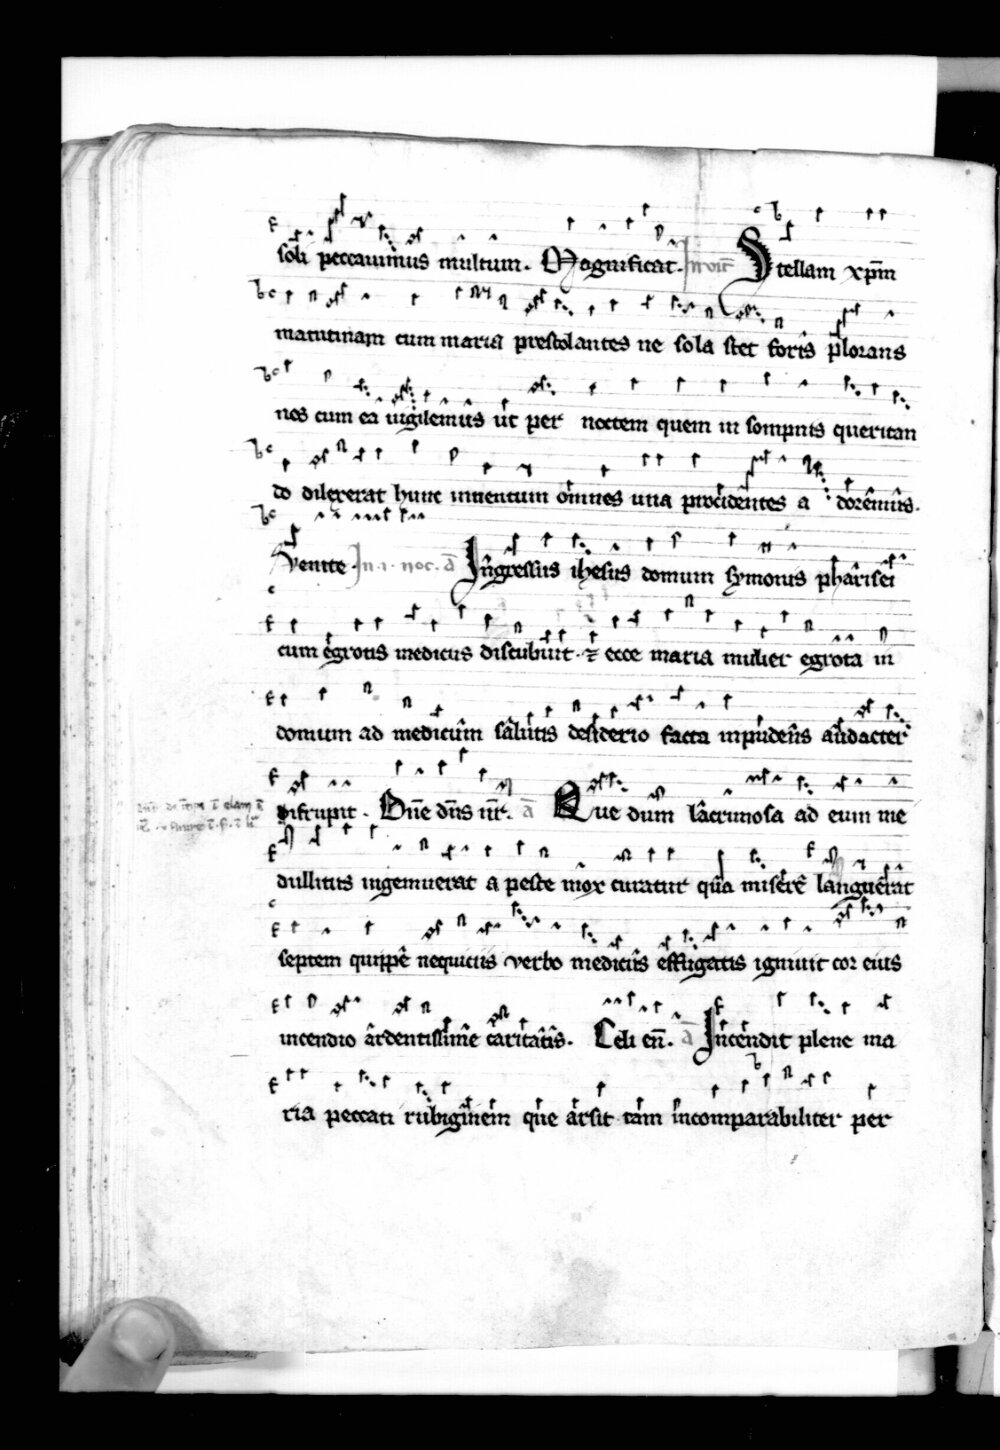 soli peccauimus multum. Magnificat. Inuit̄ Stellam xp̄m
matutinam cum maria prestolantes ne sola stet foris plorans
nos cum ea uigilemus ut per noctem quem in sompnis queritan
do dilexerat hunc inuentum om̄nes una procidentes a doremus.
Venite. In .i. noc. ā Ingressus ihesus domum symonis pharisei
cum egrotis medicus discubuit. ⁊ ecce maria mulier egrota in
domum ad medicum salutis desiderio facta inpudens audacter
disrupit. Dn̄e dn̄s nr̄. ā Que dum lacrimosa ad eum me
dullitus ingemuerat a peste mox curatur qua misere languerat
septem quippe nequiciis verbo medicus effugatis igniuit cor eius
incendio ardentissime caritatis. Celi en̄. ā Incendit plene ma
ria peccati rubiginem que arsit tam incomparabiliter per